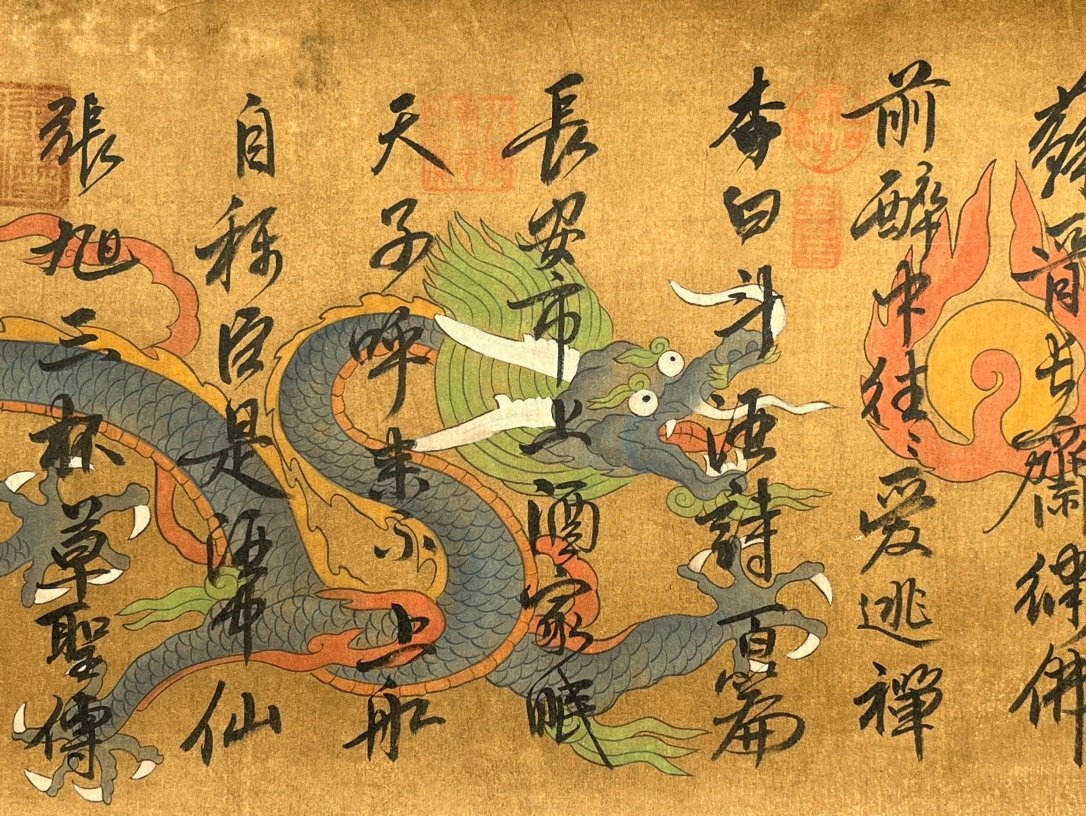 蘇晉長齋繡佛
前醉中往〻愛逃禪
李白斗酒詩百篇
長安市上酒家眠
天子呼来不上船
自称臣是酒中仙
張旭三杯草聖傳